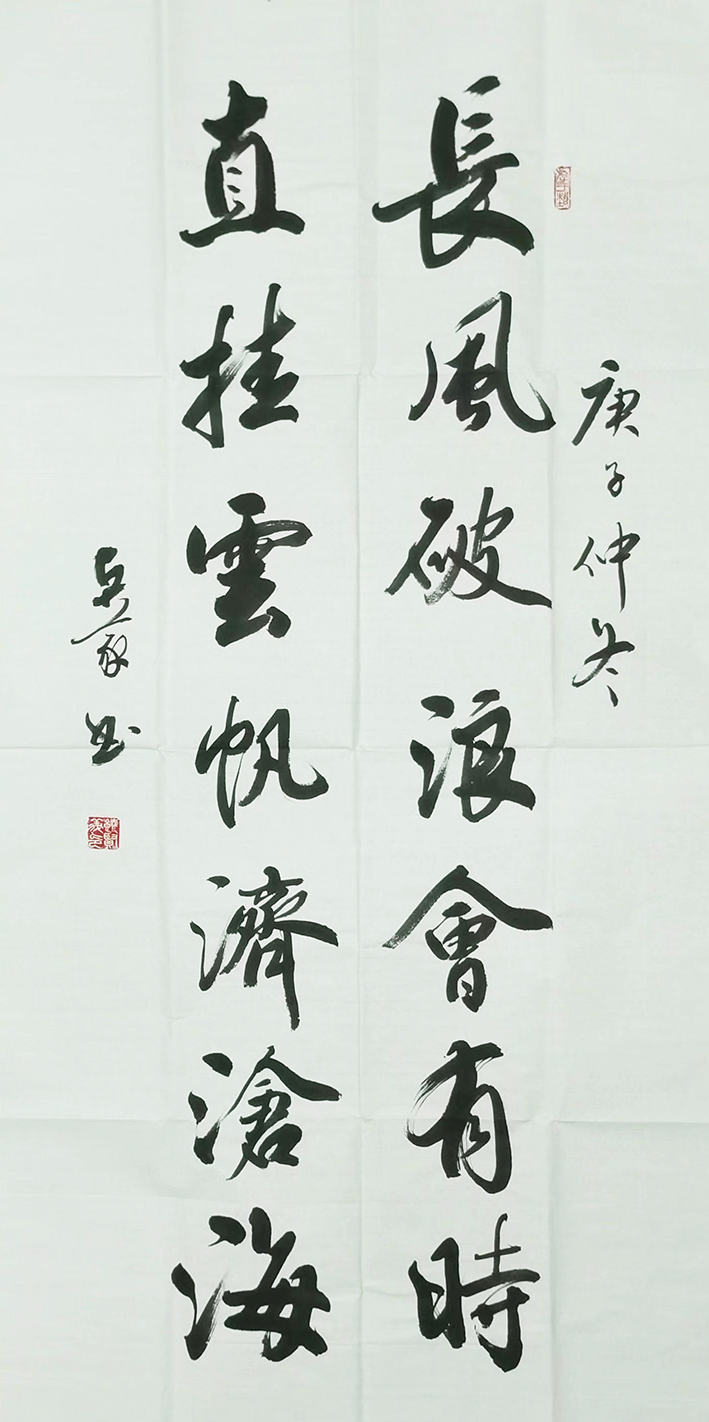 庚子仲冬
長風破浪會有時
直挂雲帆濟滄海